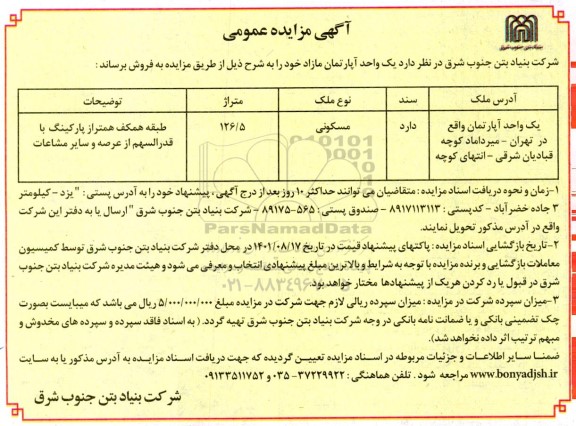 بنیاد بتن جنوب شرق
آگهی مزایده عمومی
شرکت بنیاد بتن جنوب شرق در نظر دارد یک واحد آپارتمان مازاد خود را به شرح ذیل از طریق مزایده به فروش برساند:
آدرس ملک	سند	نوع ملک	متراژ	توضیحات
یک واحد آپارتمان واقع	دارد	مسکونی	۱۲۶/۵	طبقه همکف همتراز پارکینگ با
در تهران - میرداماد کوچه	قدرالسهم از عرصه و سایر مشاعات
قبادیان شرقی - انتهای کوچه
۱-زمان و نحوه دریافت اسناد مزایده: متقاضیان می توانند حداکثر ۱۰ روز بعد از درج آگهی، پیشنهاد خود را به آدرس پستی: "یزد - کیلومتر
۳ جاده خضرآباد - کدپستی: ۸۹۱۷۱۱۳۱۱۳ - صندوق پستی: ۵۶۵-۸۹۱۷۵ - شرکت بنیاد بتن جنوب شرق "ارسال یا به دفتر این شرکت
واقع در آدرس مذکور تحویل نمایند.
۲-تاریخ بازگشایی اسناد مزایده: پاکتهای پیشنهاد قیمت در تاریخ ۱۴۰۱/۰۸/۱۷ در محل دفتر شرکت بنیاد بتن جنوب شرق توسط کمیسیون
معاملات بازگشایی و برنده مزایده با توجه به شرایط و بالاترین مبلغ پیشنهادی انتخاب و معرفی می شود و هیئت مدیره شرکت بنیاد بتن جنوب
شرق در قبول یا رد کردن هریک از پیشنهادها مختار خواهد بود.
۳-میزان سپرده شرکت در مزایده: میزان سپرده ریالی لازم جهت شرکت در مزایده مبلغ ۵/۰۰۰/۰۰۰/۰۰۰ ریال می باشد که میبایست بصورت
چک تضمینی بانکی و یا ضمانت نامه بانکی در وجه شرکت بنیاد بتن جنوب شرق تهیه گردد. (به اسناد فاقد سپرده و سپرده های مخدوش و
مبهم ترتیب اثر داده نخواهد شد).
ضمنا سایر اطلاعات و جزئیات مربوطه در اسناد مزایده تعیین گردیده که جهت دریافت اسناد مزایده به آدرس مذکور یا به سایت
www.bonyadjsh.ir مراجعه شود. تلفن هماهنگی: ۳۷۲۲۹۹۲۲-۰۳۵ و ۰۹۱۳۳۵۱۱۷۵۲
شرکت بنیاد بتن جنوب شرق
ParsNamadData